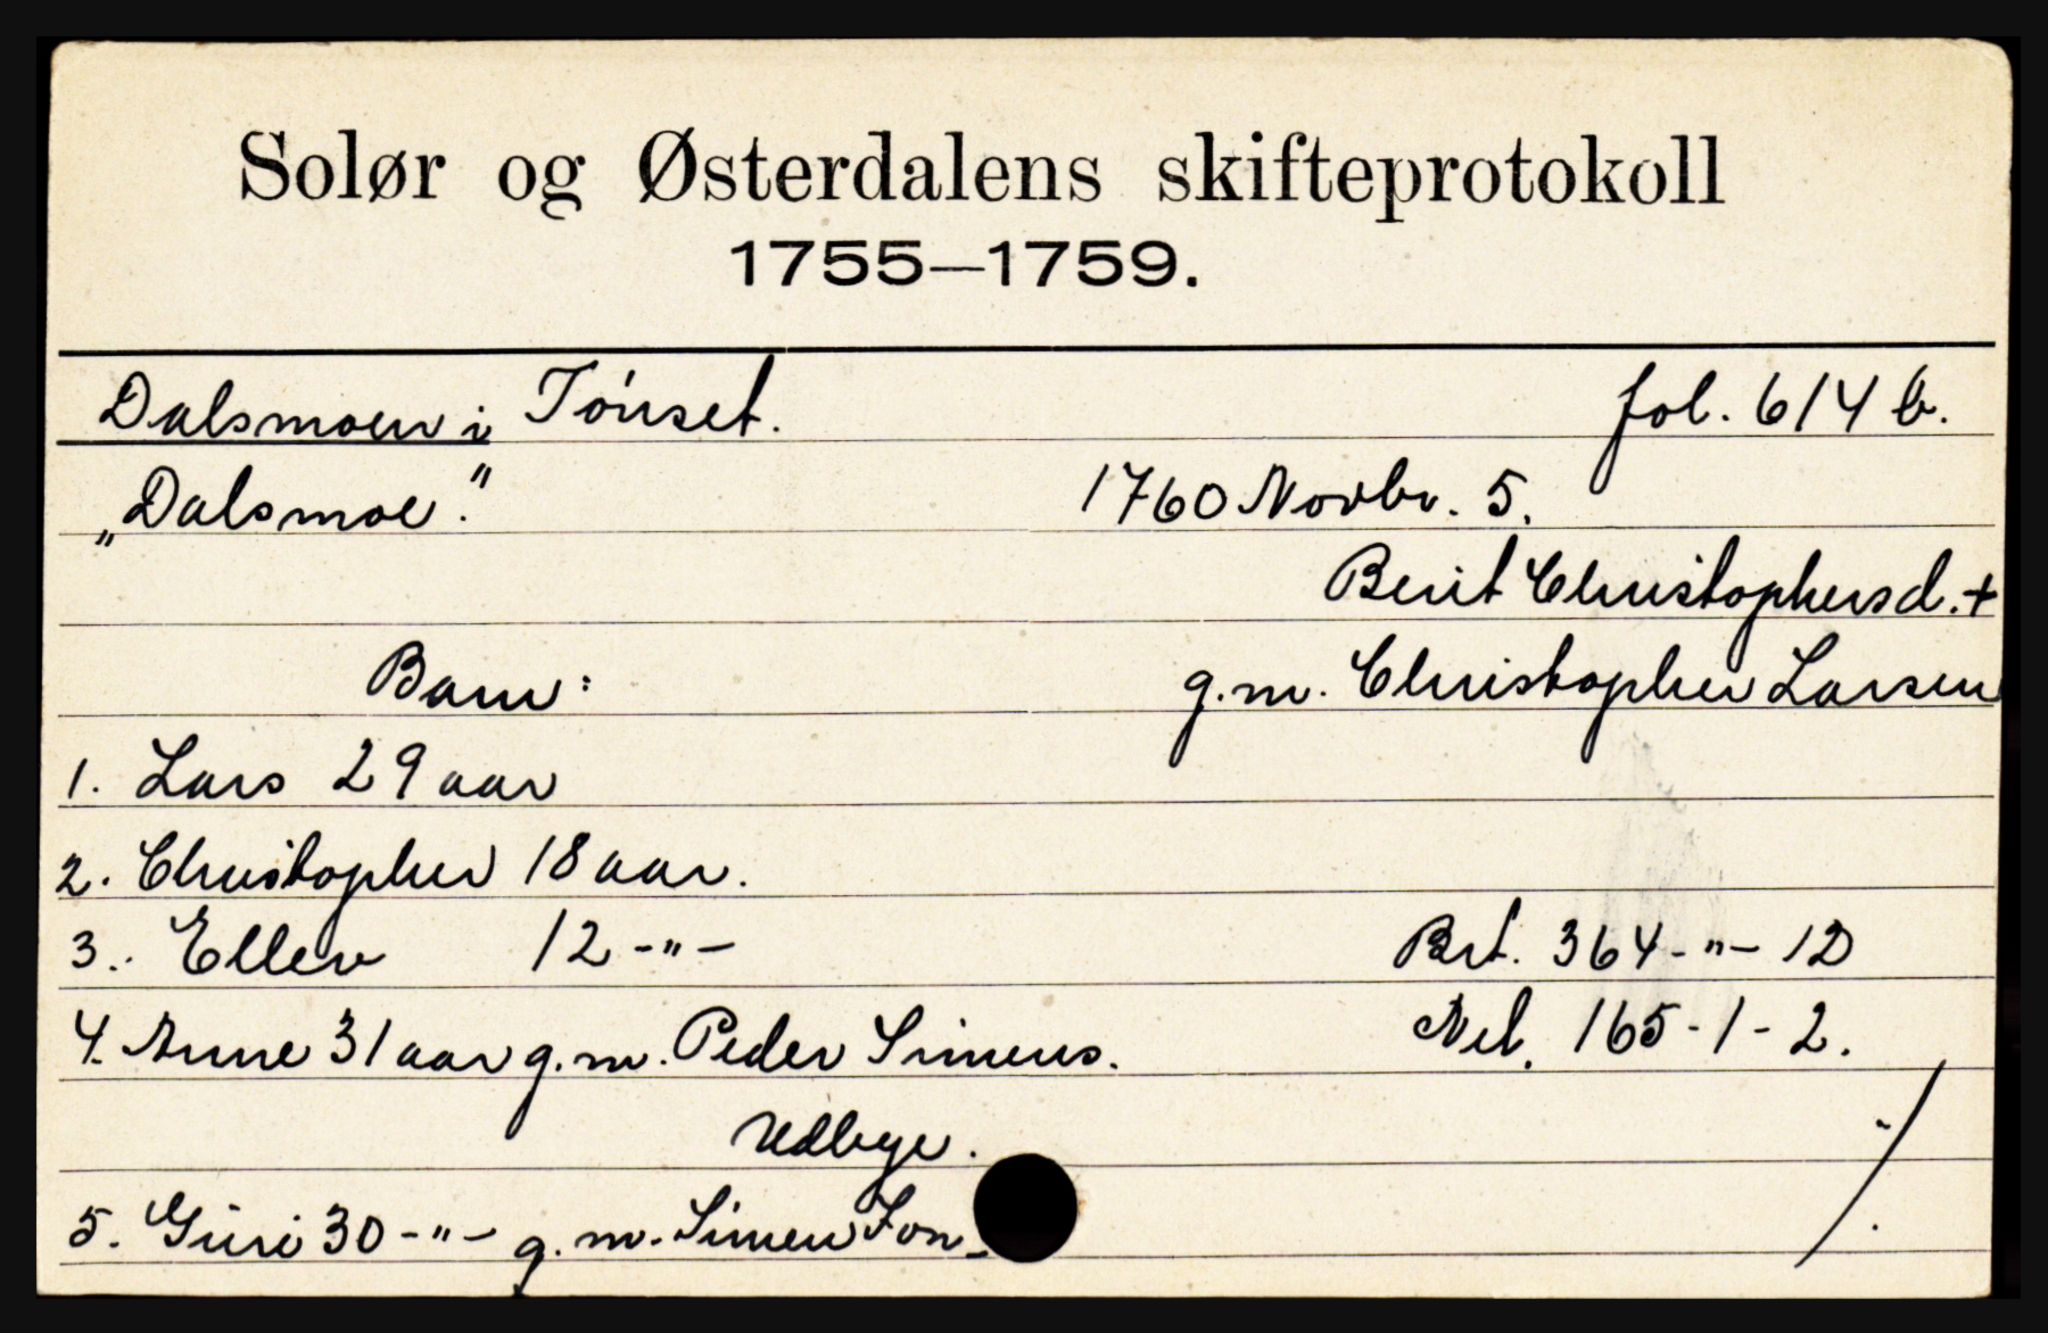 Solør og Østerdalens skifteprotokoll
1755—1759.
Dalsmoen i Tönset. fol. 614 b.
„Dalsmoe." 1760 Novbr. 5.
Berit Christophersd. +
Barn: g.m. Christopher Larsen
1. Lars 29 aar
2. Christopher 18 aar.
3. Ellen 12 -"- Brt. 364-"- 12
4. Anne 31 aar g.m. Peder Simens. Net. 165-1-2.
Udbye.
5. Guri 30 -"- g.m. Simen Jon- ./.